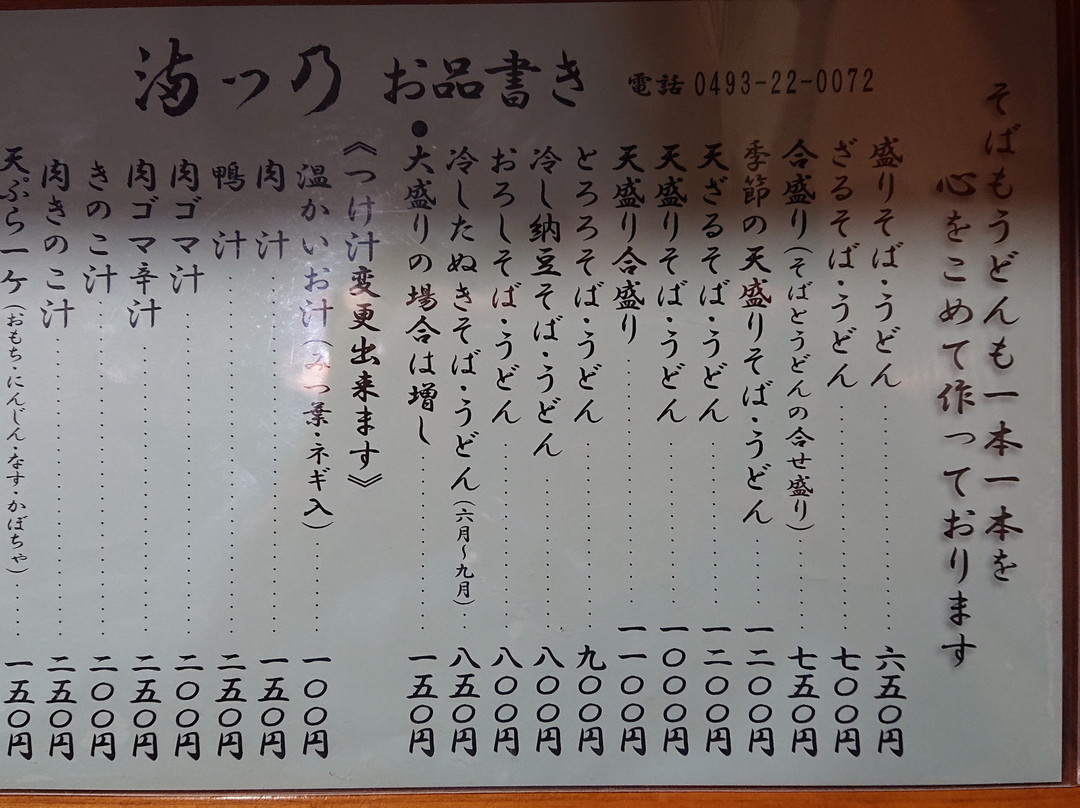 満つ乃 お品書き 電話 0493-22-0072
そばもうどんも一本一本を
心をこめて作っております
盛りそば・うどん 六五〇円
ざるそば・うどん 七〇〇円
合盛り(そばとうどんの合せ盛り) 七五〇円
季節の天盛りそば・うどん 一二〇〇円
天ざるそば・うどん 一二〇〇円
天盛りそば・うどん 一〇〇〇円
天盛り合盛り 一一〇〇円
とろろそば・うどん 九〇〇円
冷し納豆そば・うどん 八〇〇円
おろしそば・うどん 八〇〇円
冷したぬきそば・うどん(六月~九月) 八五〇円
●大盛りの場合は増し 一五〇円
《つけ汁変更出来ます》
温かいお汁(みつ葉・ネギ入) 一〇〇円
肉汁 一五〇円
鴨汁 二五〇円
肉ゴマ汁 二〇〇円
肉ゴマ辛汁 二五〇円
きのこ汁 二〇〇円
肉きのこ汁 二五〇円
天ぷら一ケ(おもち・にんじん・なす・かぼちゃ) 一五〇円